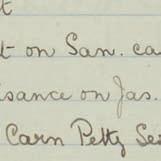 t on San. ca
isance on Jas.
Carn Petty Se